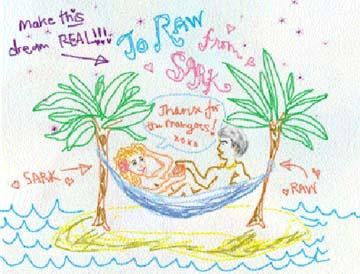 Make this
dream REAL!!!
To RAW
from
SARK
Thanx for
the mangoes!
xoxo
SARK
RAW